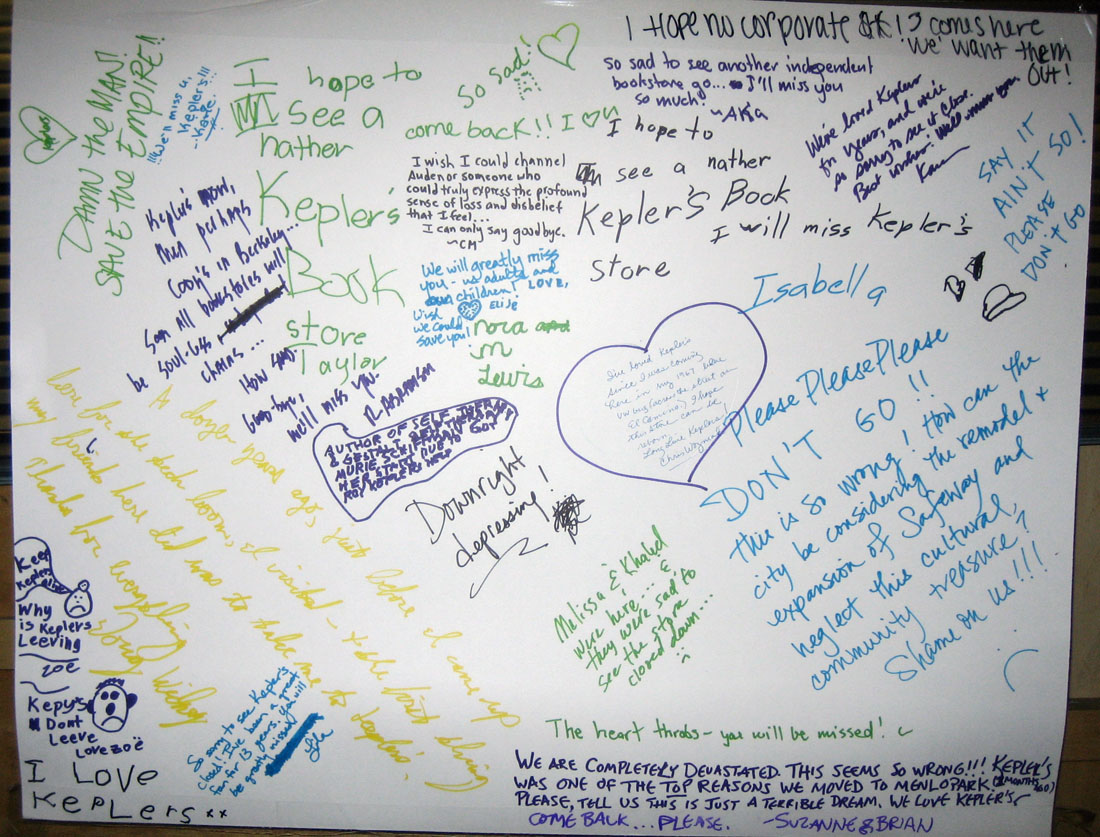 I HOPE NO CORPORATE
comes here
We want them
OUT!
so sad to see another independent
bookstore go... I'll miss you
so much!
~AKA
We've loved Keplers
for years, and we're
so sorry to see it close.
Best wishes!
SAY IT
AIN'T SO!
PLEASE
DON'T GO
so sad!
I hope to
see a
nather
Kepler's
Book
store
Taylor
come back!! I
DAMN THE MAN!
SAVE THE EMPIRE!!
!!!We'll miss u,
Kepler's!!!
I hope to
see a nather
Kepler's Book
store
I will miss Kepler's
Isabella
I wish I could channel
Auden or someone who
could truly express the profound
sense of loss and disbelief
that I feel...
I can only say goodbye.
~CM
Kepler's now,
then perhaps
Cody's in Berkeley...
Soon all bookstores will
be soul-less
chains...
How sad.
Good-bye,
we'll miss you.
We will greatly miss
you - us adults and
children! LOVE,
ELISE
Wish
we could
save you!
nora
n
Lewis
I've loved Kepler's
since I was coming
here in my 1967 blue
VW bug (across the street on
El Camino.) I hope
this store can be
reborn.
Long Live Keplers!
Chris
AUTHOR OF SELF THERAPY
& GESTALT SELF THERAPY
MURIEL SCHIFFMAN GOT
HER START DUE TO
ROY KEPLER'S HELP
Downright
depressing!
Please Please Please
DON'T GO!!
This is so wrong! How can the
city be considering the remodel +
expansion of Safeway and
neglect this cultural,
community treasure?
Shame on us!!!
A dozen years ago, just before I came up
here for the tech boom, I visited - & the first thing
my friends here did was to take me to Kepler's.
Thanks for everything
Keep
Keplers
alive
Why
is Keplers
Leeving
zoë
Kepy's
Dont
Leeve
Love zoë
I LOVE
KEPLERS
So sorry to see Keplers
close! I've been a great
fan for 13 years. You will
be greatly missed
Melissa & Khaled
were here... &
they were sad to
see the store
closed down...
The heart throbs - you will be missed!
WE ARE COMPLETELY DEVASTATED. THIS SEEMS SO WRONG!!! KEPLER'S
WAS ONE OF THE TOP REASONS WE MOVED TO MENLO PARK. (2 MONTHS AGO)
PLEASE, TELL US THIS IS JUST A TERRIBLE DREAM. WE LOVE KEPLER'S
COME BACK... PLEASE. ~SUZANNE & BRIAN